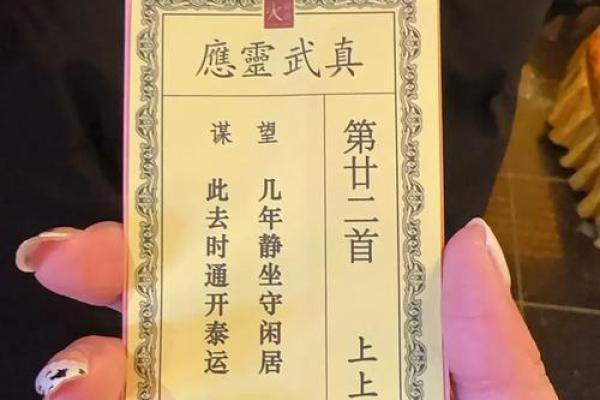 火
真武靈應
第廿二首 上上
望 几年静坐守闲居
谋 此去时通开泰运